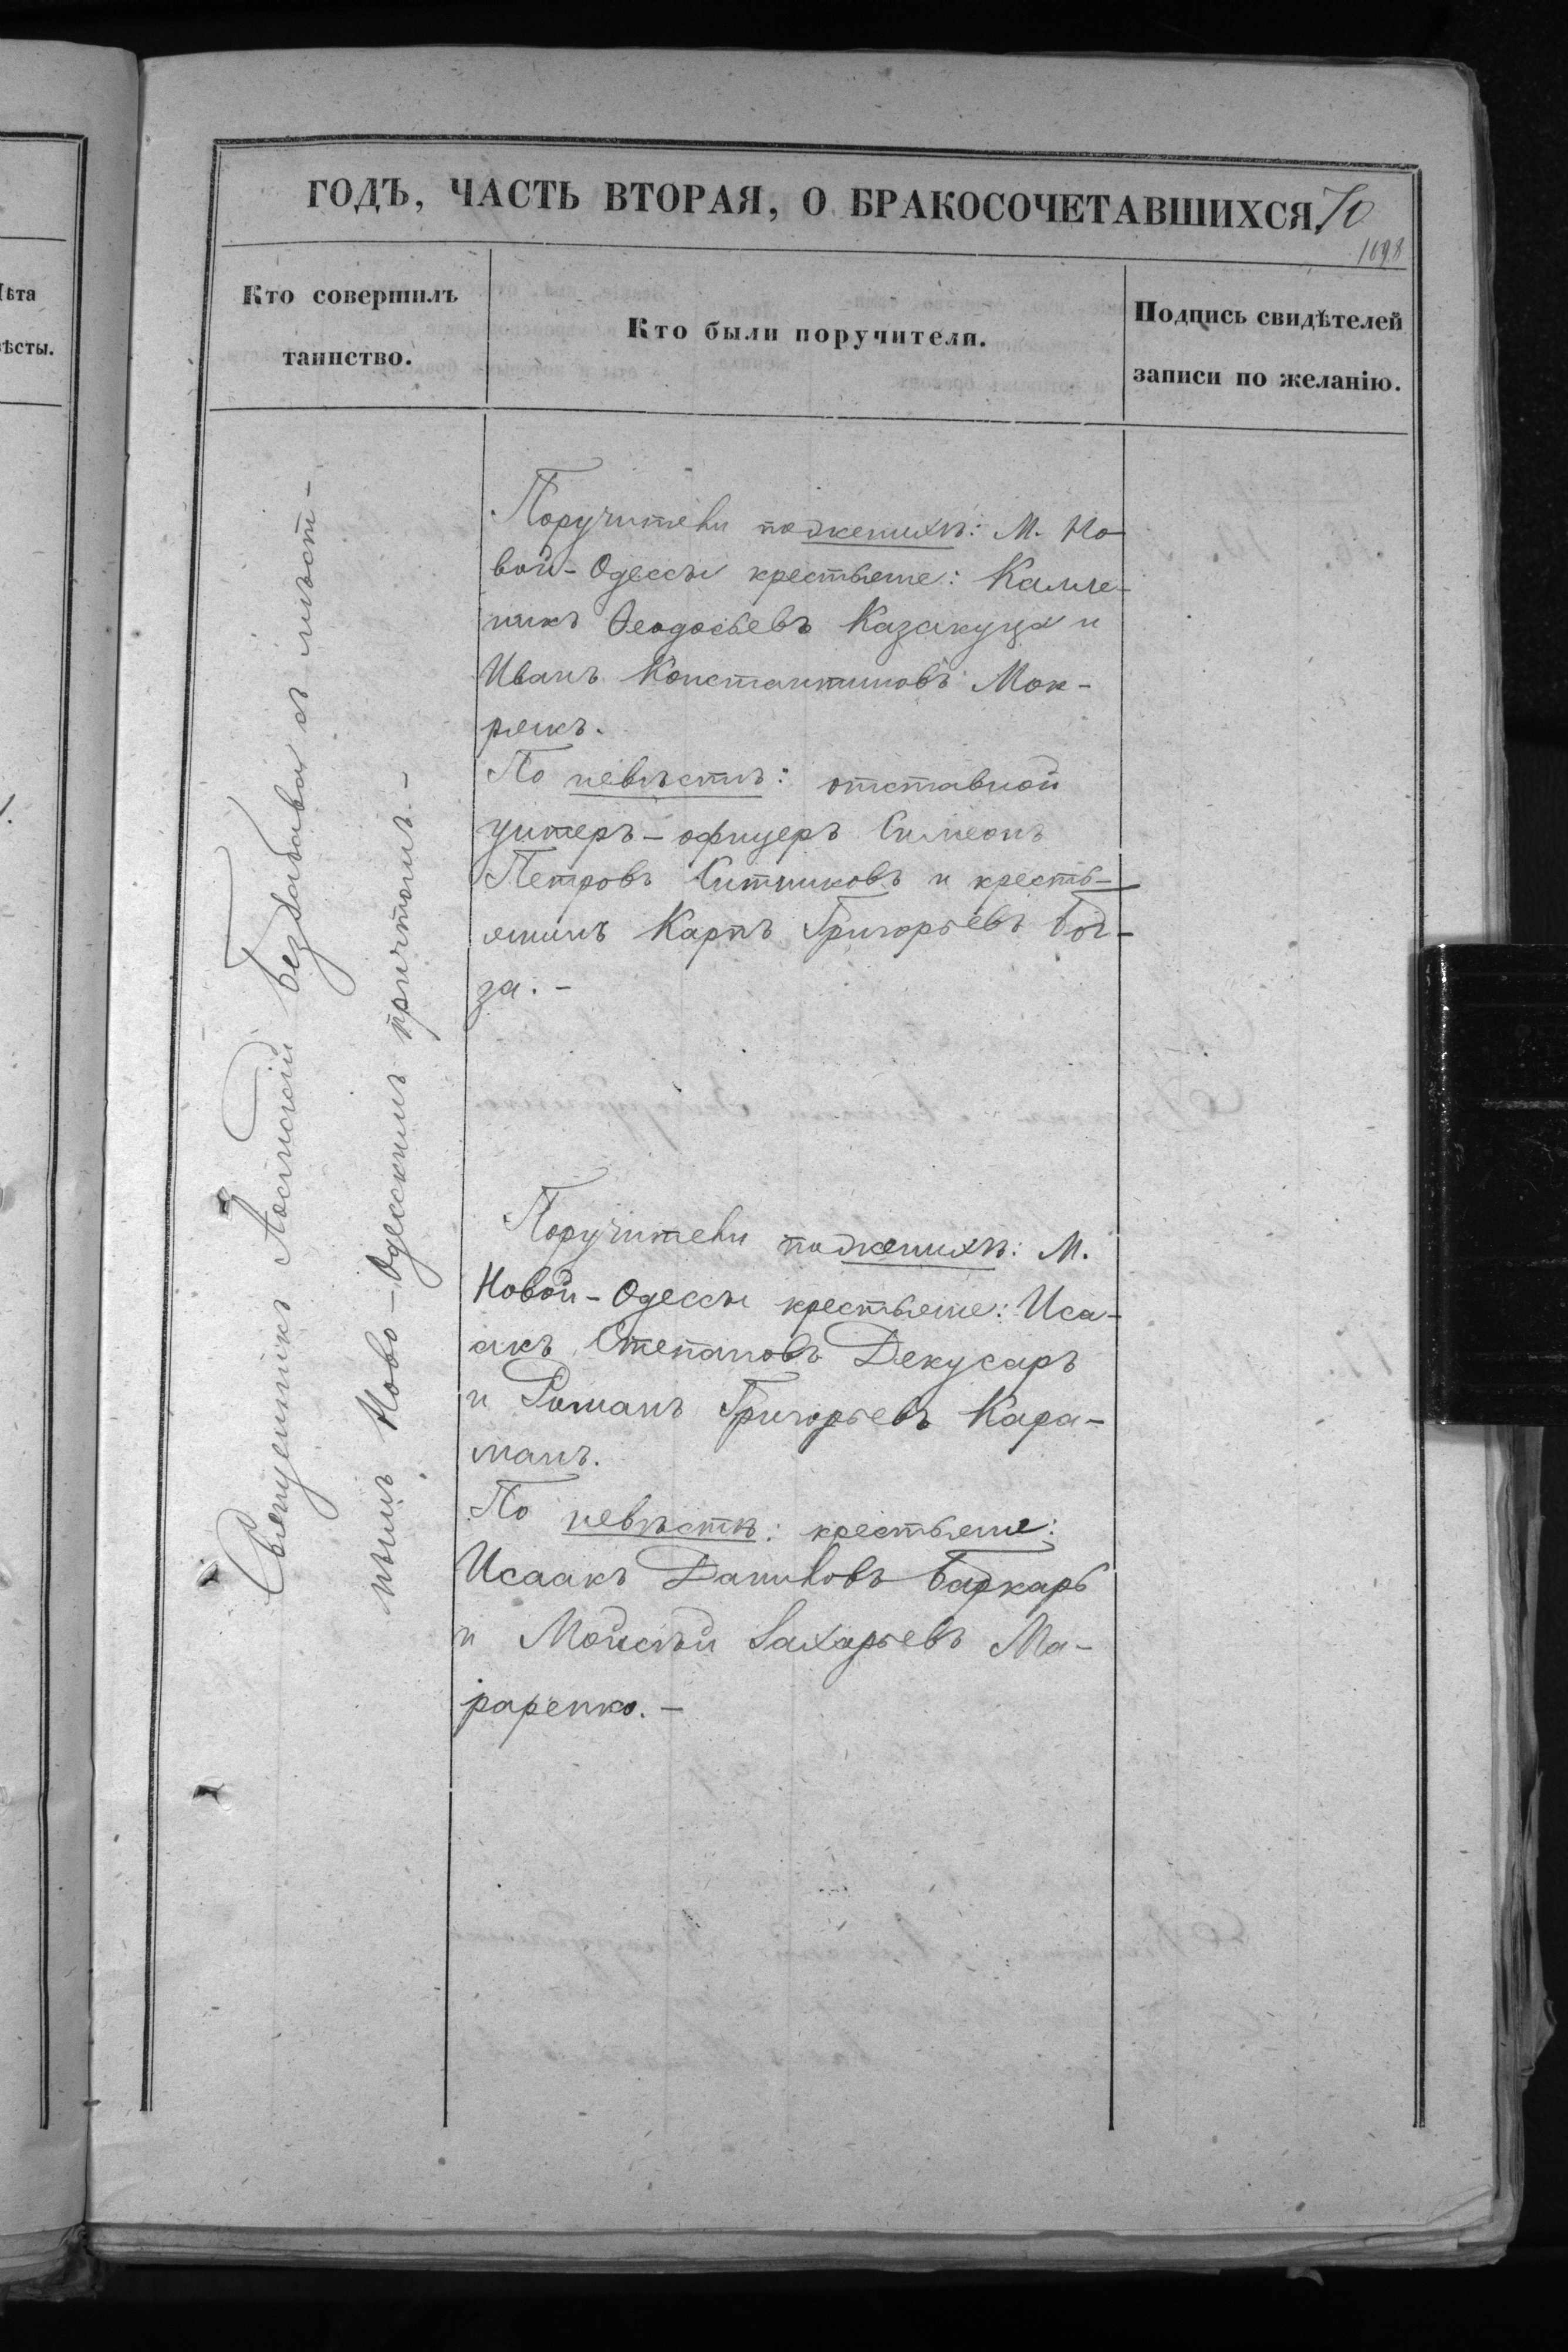 ГОДЪ, ЧАСТЬ ВТОРАЯ, О БРАКОСОЧЕТАВШИХСЯ. 70
1698
Кто совершилъ
таинство.
Кто были поручители.
Подпись свидѣтелей
записи по желанію.
Лѣта
вѣсты.
Священникъ Іосифъ Беззабава съ мѣст-
нымъ Ново-Одесскимъ причтомъ.-
Поручители по женихѣ: М. Но-
вой-Одессы крестьяне: Калле-
никъ Ѳеодосьевъ Казакуца и
Иванъ Константиновъ Мок-
рякъ.
По невѣстѣ: отставной
унтеръ-офицеръ Симеонъ
Петровъ Ситниковъ и кресть-
янинъ Карпъ Григорьевъ
за.-
Поручители по женихѣ: М.
Новой-Одессы крестьяне: Иса-
акъ Степановъ Декусаръ
и Романъ Григорьевъ Кара-
манъ.
По невѣстѣ: крестьяне:
Исаакъ Даниловъ Баркарь
и Моисѣй Захарьевъ Ма-
раренко.-